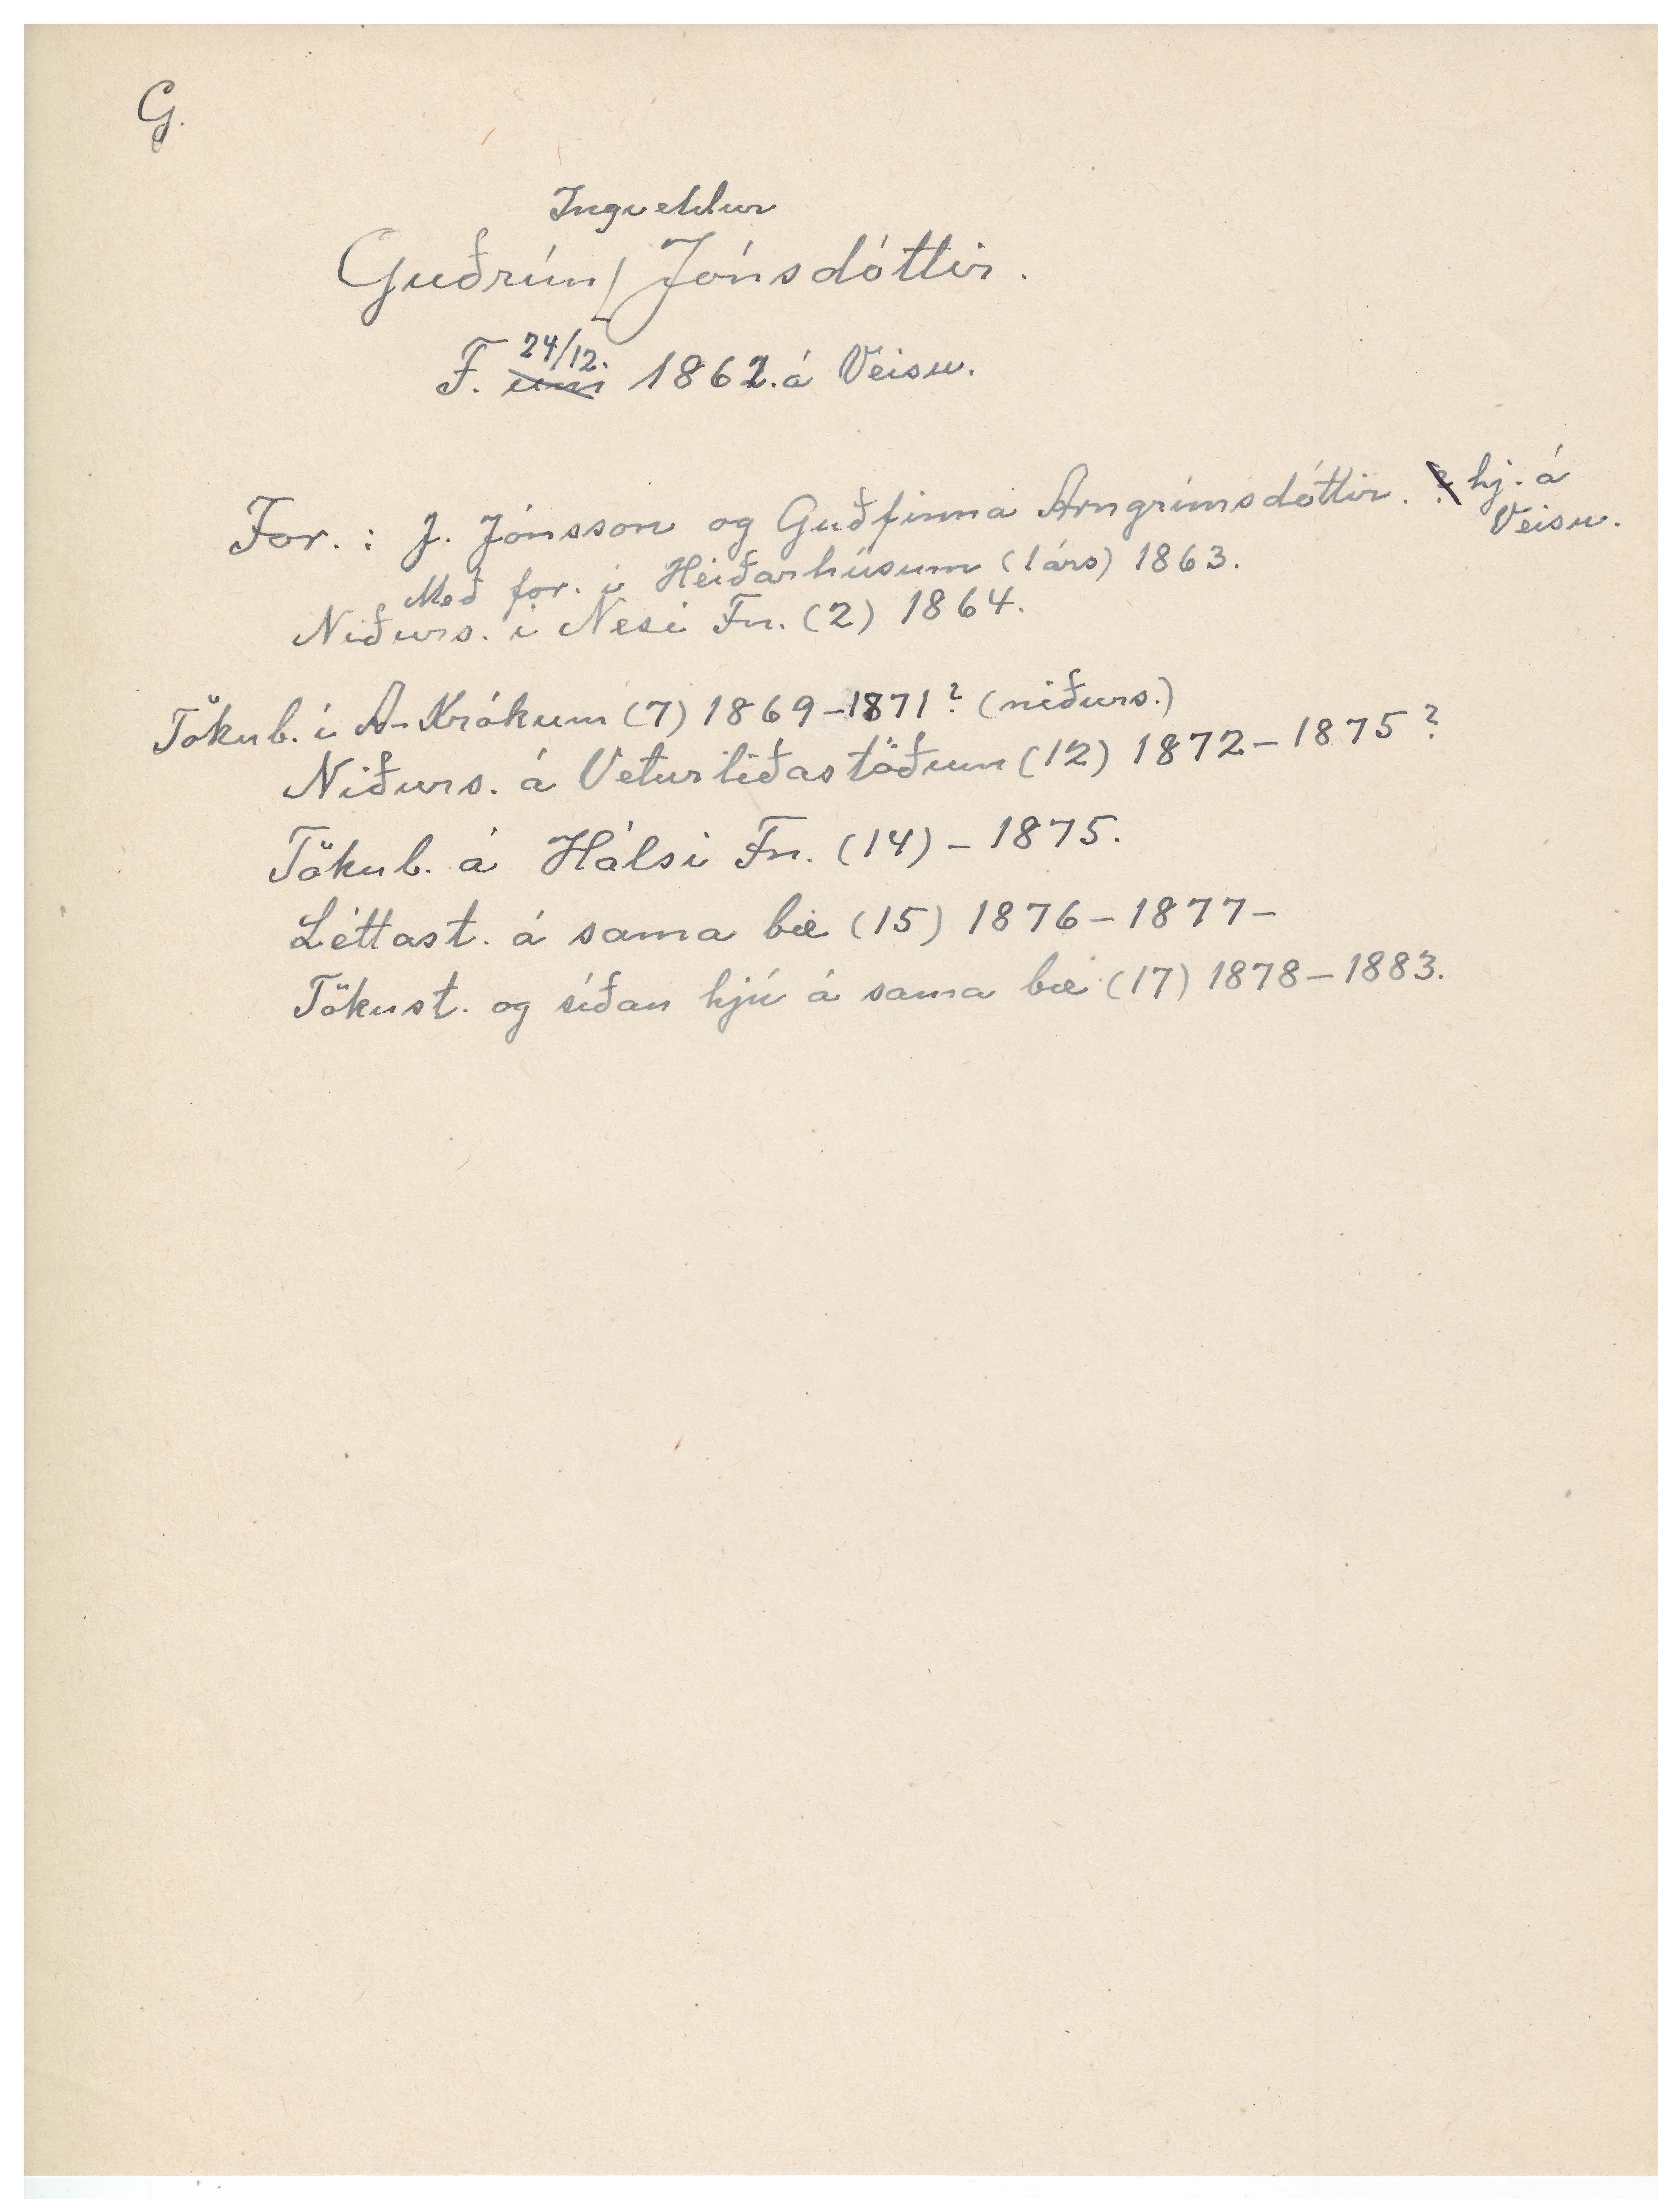 G.
Ingveldur
Guðrún Jónsdóttir.
24/12.
F. um 1862. á Veisu.
For. : J. Jónsson og Guðfinna Arngrímsdóttir. ? hj. á
Veisu.
Með for. í Heiðarhúsum (1 árs) 1863.
Niðurs. í Nesi Fn. (2) 1864.
Tökub. í A-Krókum (7) 1869-1871? (niðurs.)
Niðurs. á Veturliðastöðum (12) 1872-1875?
Tökub. á Hálsi Fn. (14) - 1875.
Léttast. á sama bæ (15) 1876-1877-
Tökust. og síðan hjú á sama bæ (17) 1878-1883.